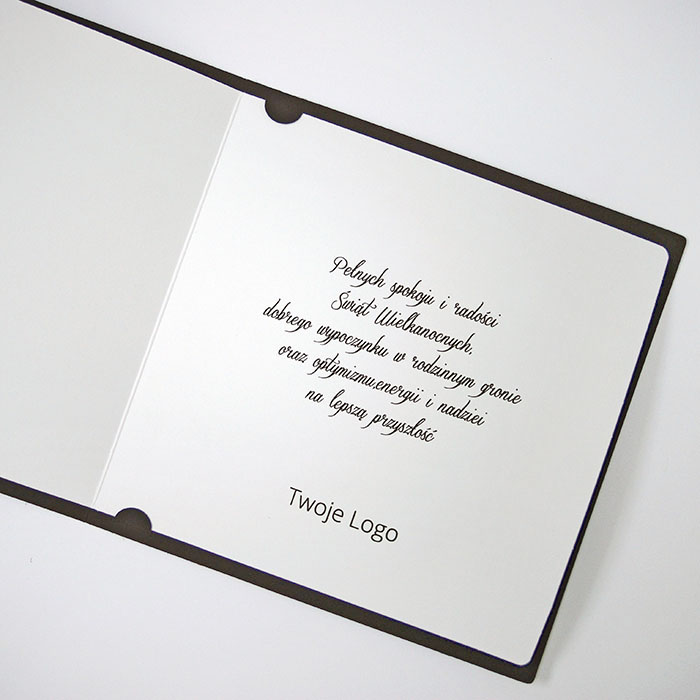 Pełnych spokoju i radości
Świąt Wielkanocnych,
dobrego wypoczynku w rodzinnym gronie
oraz optymizmu,energii i nadziei
na lepszą przyszłość
Twoje Logo